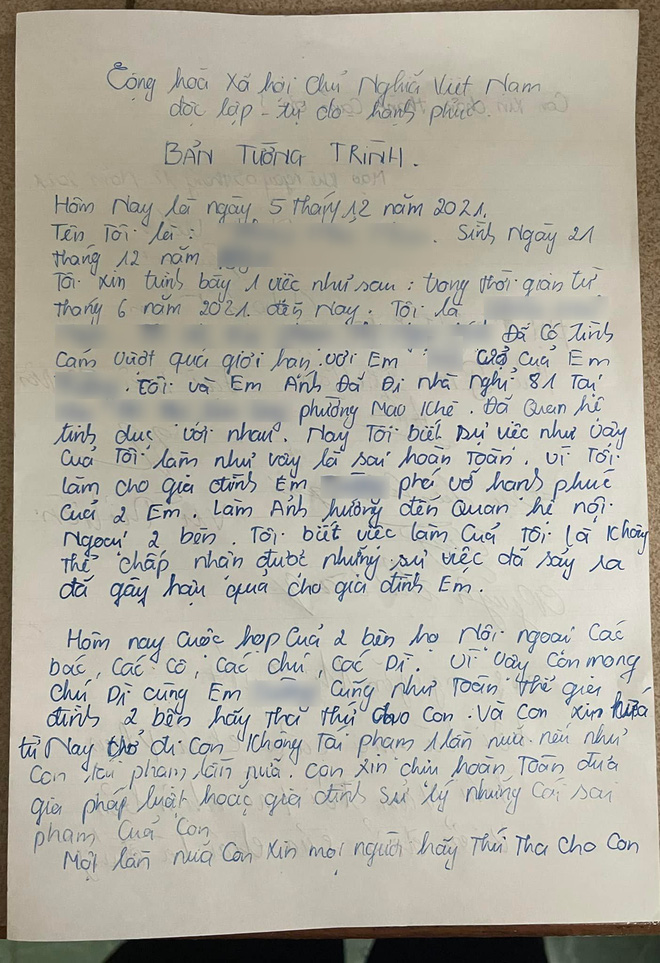 Cộng hoà Xã hội Chủ Nghĩa Việt Nam
độc lập - tự do hạnh phúc.
BẢN TƯỜNG TRÌNH.
Hôm Nay là ngày 5 tháng 12 năm 2021.
Tên Tôi là : Sinh Ngày 21
tháng 12 năm
Tôi xin trình bày 1 việc như sau : trong thời gian từ
tháng 6 năm 2021. đến Nay. Tôi là
Đã Có tình
Cảm vượt quá giới hạn với Em Của Em
. Tôi và Em Ánh Đã Đi nhà Nghỉ 81 Tại
phường Mạo Khê. Đã Quan hệ
tình dục với nhau. Nay Tôi biết sự việc như vậy
Của Tôi làm như vậy là sai hoàn Toàn. Vì Tôi
làm cho gia đình Em phá vỡ hạnh phúc
Của 2 Em. Làm Ảnh hưởng đến Quan hệ nội
Ngoại 2 bên. Tôi biết việc làm Của Tôi là Không
thể chấp nhận được những sự việc đã sảy ra
đã gây hậu quả cho gia đình Em.
Hôm nay Cuộc họp Của 2 bên họ Nội ngoại Các
bác, Các Cô, Các chú, Các Dì. Vì vậy Con mong
chú Dì cùng Em Cũng như Toàn Thể gia
đình 2 bên hãy Tha thứ cho Con. Và Con xin hứa
từ Nay trở đi Con Không Tái phạm 1 lần nữa. nếu như
Con tái phạm lần nữa. Con xin chịu hoàn Toàn đưa
gia pháp luật hoặc gia đình sử lý những Cái sai
phạm Của Con
Một lần nữa Con Xin mọi người hãy Thứ Tha Cho Con